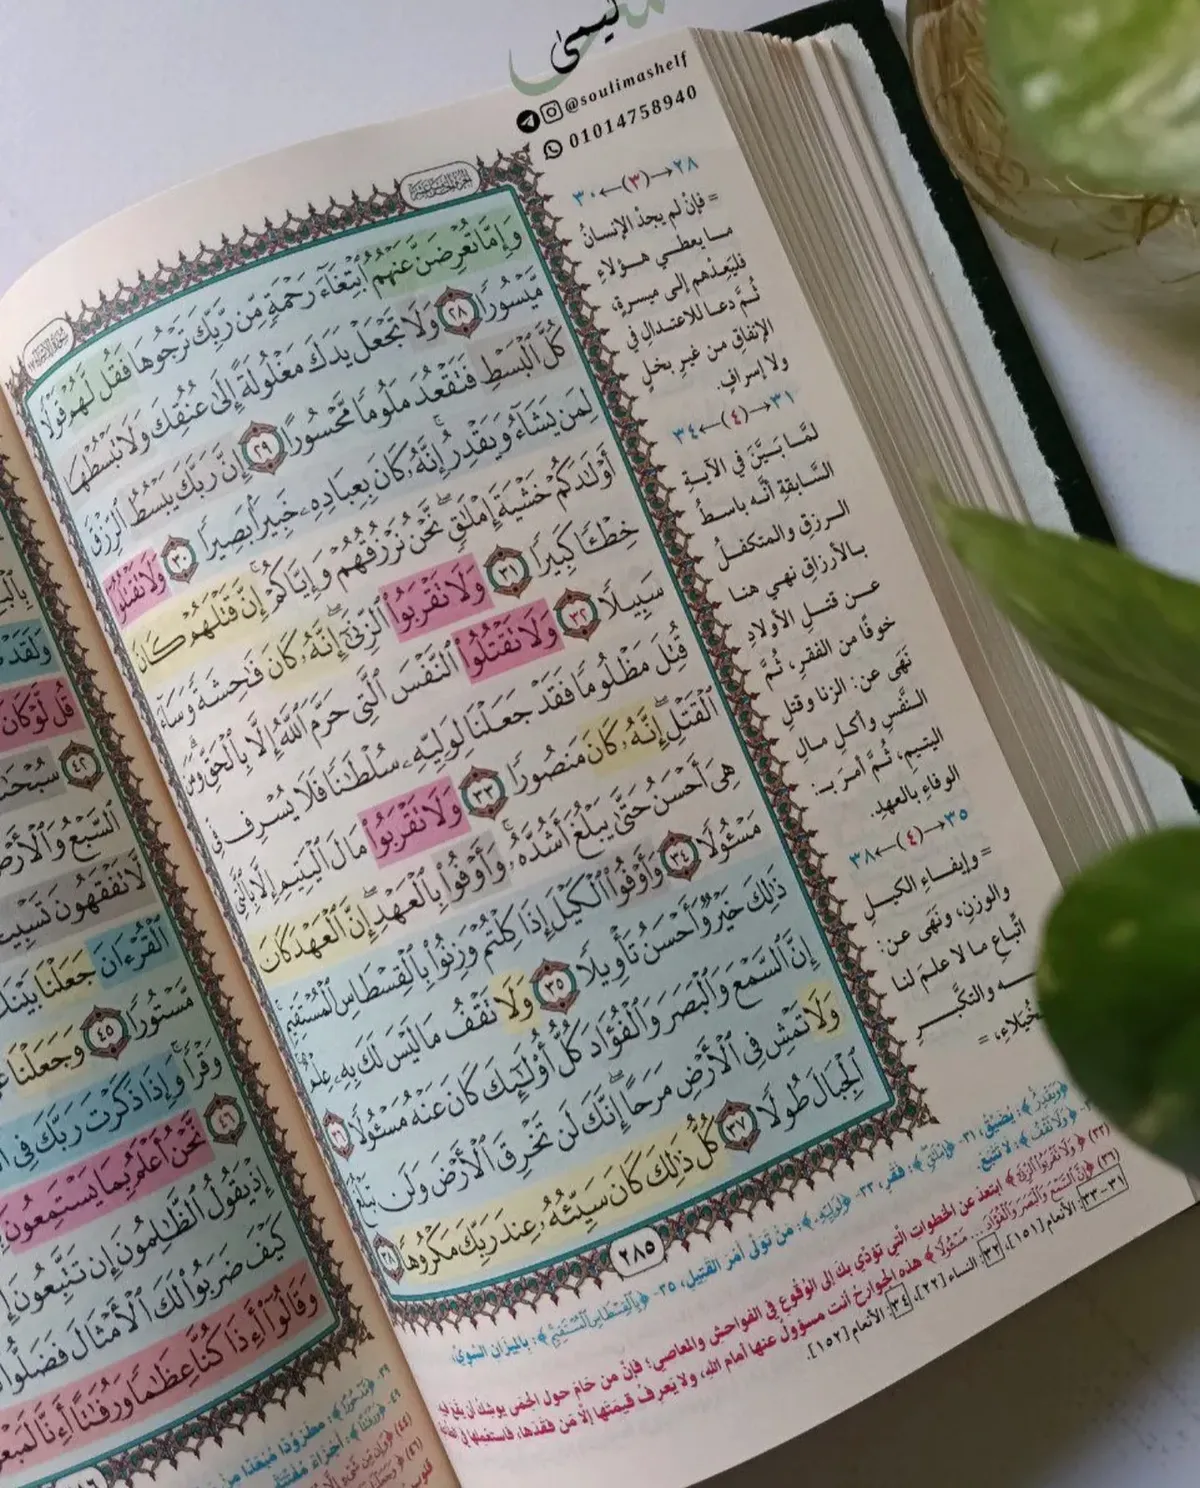 سليمى
@soulimashelf
01014758940
وَإِمَّا تُعْرِضَنَّ عَنْهُمُ ٱبْتِغَآءَ رَحْمَةٍ مِّن رَّبِّكَ تَرْجُوهَا فَقُل لَّهُمْ قَوْلًا
مَّيْسُورًا ٢٨ وَلَا تَجْعَلْ يَدَكَ مَغْلُولَةً إِلَىٰ عُنُقِكَ وَلَا تَبْسُطْهَا
كُلَّ ٱلْبَسْطِ فَتَقْعُدَ مَلُومًا مَّحْسُورًا ٢٩ إِنَّ رَبَّكَ يَبْسُطُ ٱلرِّزْقَ
لِمَن يَشَآءُ وَيَقْدِرُ إِنَّهُۥ كَانَ بِعِبَادِهِۦ خَبِيرًۢا بَصِيرًا ٣٠ وَلَا تَقْتُلُوٓا۟
أَوْلَٰدَكُمْ خَشْيَةَ إِمْلَٰقٍ نَّحْنُ نَرْزُقُهُمْ وَإِيَّاكُمْ إِنَّ قَتْلَهُمْ كَانَ
خِطْـًٔا كَبِيرًا ٣١ وَلَا تَقْرَبُوا۟ ٱلزِّنَىٰٓ إِنَّهُۥ كَانَ فَٰحِشَةً وَسَآءَ
سَبِيلًا ٣٢ وَلَا تَقْتُلُوا۟ ٱلنَّفْسَ ٱلَّتِى حَرَّمَ ٱللَّهُ إِلَّا بِٱلْحَقِّ وَمَن
قُتِلَ مَظْلُومًا فَقَدْ جَعَلْنَا لِوَلِيِّهِۦ سُلْطَٰنًا فَلَا يُسْرِف فِّى
ٱلْقَتْلِ إِنَّهُۥ كَانَ مَنصُورًا ٣٣ وَلَا تَقْرَبُوا۟ مَالَ ٱلْيَتِيمِ إِلَّا بِٱلَّتِى
هِىَ أَحْسَنُ حَتَّىٰ يَبْلُغَ أَشُدَّهُۥ وَأَوْفُوا۟ بِٱلْعَهْدِ إِنَّ ٱلْعَهْدَ كَانَ
مَسْـُٔولًا ٣٤ وَأَوْفُوا۟ ٱلْكَيْلَ إِذَا كِلْتُمْ وَزِنُوا۟ بِٱلْقِسْطَاسِ ٱلْمُسْتَقِيمِ
ذَٰلِكَ خَيْرٌ وَأَحْسَنُ تَأْوِيلًا ٣٥ وَلَا تَقْفُ مَا لَيْسَ لَكَ بِهِۦ عِلْمٌ
إِنَّ ٱلسَّمْعَ وَٱلْبَصَرَ وَٱلْفُؤَادَ كُلُّ أُو۟لَٰٓئِكَ كَانَ عَنْهُ مَسْـُٔولًا ٣٦
وَلَا تَمْشِ فِى ٱلْأَرْضِ مَرَحًا إِنَّكَ لَن تَخْرِقَ ٱلْأَرْضَ وَلَن تَبْلُغَ
ٱلْجِبَالَ طُولًا ٣٧ كُلُّ ذَٰلِكَ كَانَ سَيِّئُهُۥ عِندَ رَبِّكَ مَكْرُوهًا ٣٨
٢٨٥
٢٨→(٣)←٣٠
= فإنْ لم يجدْ الإنسانُ
ما يعطي هؤلاءِ
فليَعِدْهم إلى ميسرةٍ،
ثُمَّ دعا للاعتدالِ في
الإنفاقِ من غيرِ بخلٍ
ولا إسرافٍ.
٣١→(٤)←٣٤
لمَّا بَيَّنَ في الآيةِ
السَّابقةِ أنَّه باسطُ
الرزقِ والمتكفلُ
بالأرزاقِ نهى هنا
عن قتلِ الأولادِ
خوفًا من الفقرِ، ثُمَّ
نَهَى عن: الزنا وقتلِ
النَّفسِ وأكلِ مالِ
اليتيمِ، ثُمَّ أمرَ بـ:
الوفاءِ بالعهدِ.
٣٥→(٤)←٣٨
= وإيفاءِ الكيلِ
والوزنِ، ونَهَى عن:
اتِّباعِ ما لا علمَ لنا
ـه والتكبُّرِ
الخُيَلاءِ، =
﴿وَيَقْدِرُ﴾: يضيّقُ، ٣١- ﴿إِمْلَٰقٍ﴾: فقرٍ، ٣٣- ﴿لِوَلِيِّهِۦ﴾: مَنْ تَولَّى أمْرَ القَتِيلِ، ٣٥- ﴿بِٱلْقِسْطَاسِ ٱلْمُسْتَقِيمِ﴾: بالميزانِ السَّوِيِّ،
﴿وَلَا تَقْفُ﴾: لا تَتَّبِعْ.
(٣٢) ﴿وَلَا تَقْرَبُوا۟ ٱلزِّنَىٰٓ﴾ ابتعدْ عن الخطواتِ الَّتي تؤدِّي بكَ إلى الوُقُوعِ في الفواحشِ والمعاصِي؛ فإنَّ من حَامَ حولَ الحِمَى يوشِكُ أن يقعَ فيه
(٣٦) ﴿إِنَّ ٱلسَّمْعَ وَٱلْبَصَرَ وَٱلْفُؤَادَ ... مَسْـُٔولًا﴾ هذه الجوارحُ أنت مسؤولٌ عنها أمامَ اللهِ، ولا يَعرِفُ قيمتَها إلَّا مَن فقدَها، فاستعملها في
٣١-٣٣: الأنعام [١٥١]، ٣٢: النساء [٢٢]، ٣٤: الأنعام [١٥٢].
وَلَقَدْ
قُل لَّوْ كَانَ
٤٢ سُبْحَٰنَ
ٱلسَّبْعُ وَٱلْأَرْضُ
لَّا تَفْقَهُونَ تَسْبِيحَ
ٱلْقُرْءَانَ جَعَلْنَا بَيْنَكَ
مَّسْتُورًا ٤٥ وَجَعَلْنَا
وَقْرًا وَإِذَا ذَكَرْتَ رَبَّكَ فِى
٤٦ نَّحْنُ أَعْلَمُ بِمَا يَسْتَمِعُونَ
إِذْ يَقُولُ ٱلظَّٰلِمُونَ إِن تَتَّبِعُونَ
كَيْفَ ضَرَبُوا۟ لَكَ ٱلْأَمْثَالَ فَضَلُّوا۟
وَقَالُوٓا۟ أَءِذَا كُنَّا عِظَٰمًا وَرُفَٰتًا أَءِنَّا